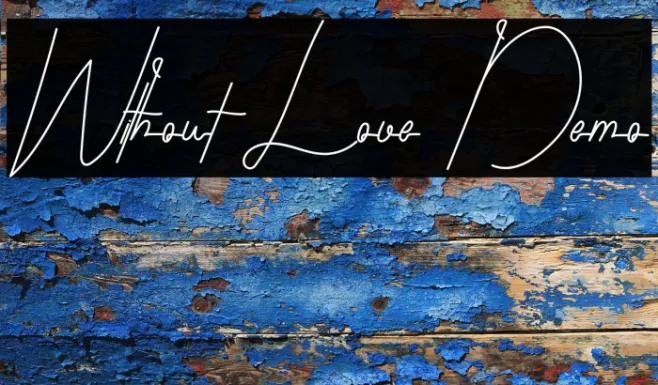 Without Love Demo